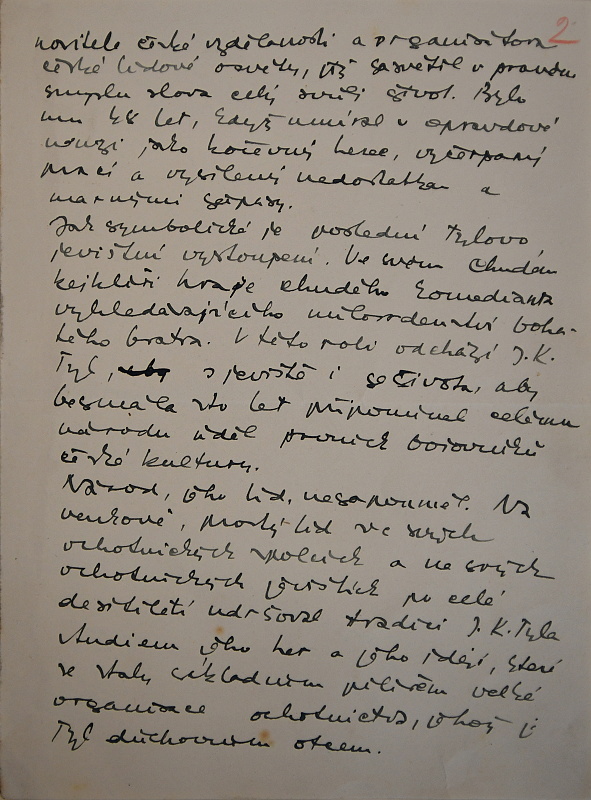 2.
novitele české vzdělanosti a organisátora
české lidové osvěty, jíž zasvětil v pravém
smyslu slova celý svůj život. Bylo
mu 48 let, když umíral v opravdové
nouzi jako kočovný herec, vyčerpaný
prací a vysílený nedostatkem a
marnými zápasy.
Jak symbolické je poslední Tylovo
jevištní vystoupení. Ve svém Chudém
kejklíři hraje chudého komedianta
vyhledávajícího milosrdenství boha-
tého bratra. V této roli odchází J. K.
Tyl, aby s jeviště i ze života, aby
bezmála sto let připomínal celému
národu úděl prvních bojovníků
české kultury.
Národ, jeho lid, nezapomněl. Na
venkově, prostý lid ve svých
ochotnických spolcích a na svých
ochotnických jevištích po celé
desítiletí udržoval tradici J. K. Tyla
studiem jeho her a jeho idejí, které
se staly základním pilířem velké
organisace ochotnictva, jehož je
Tyl duchovním otcem.